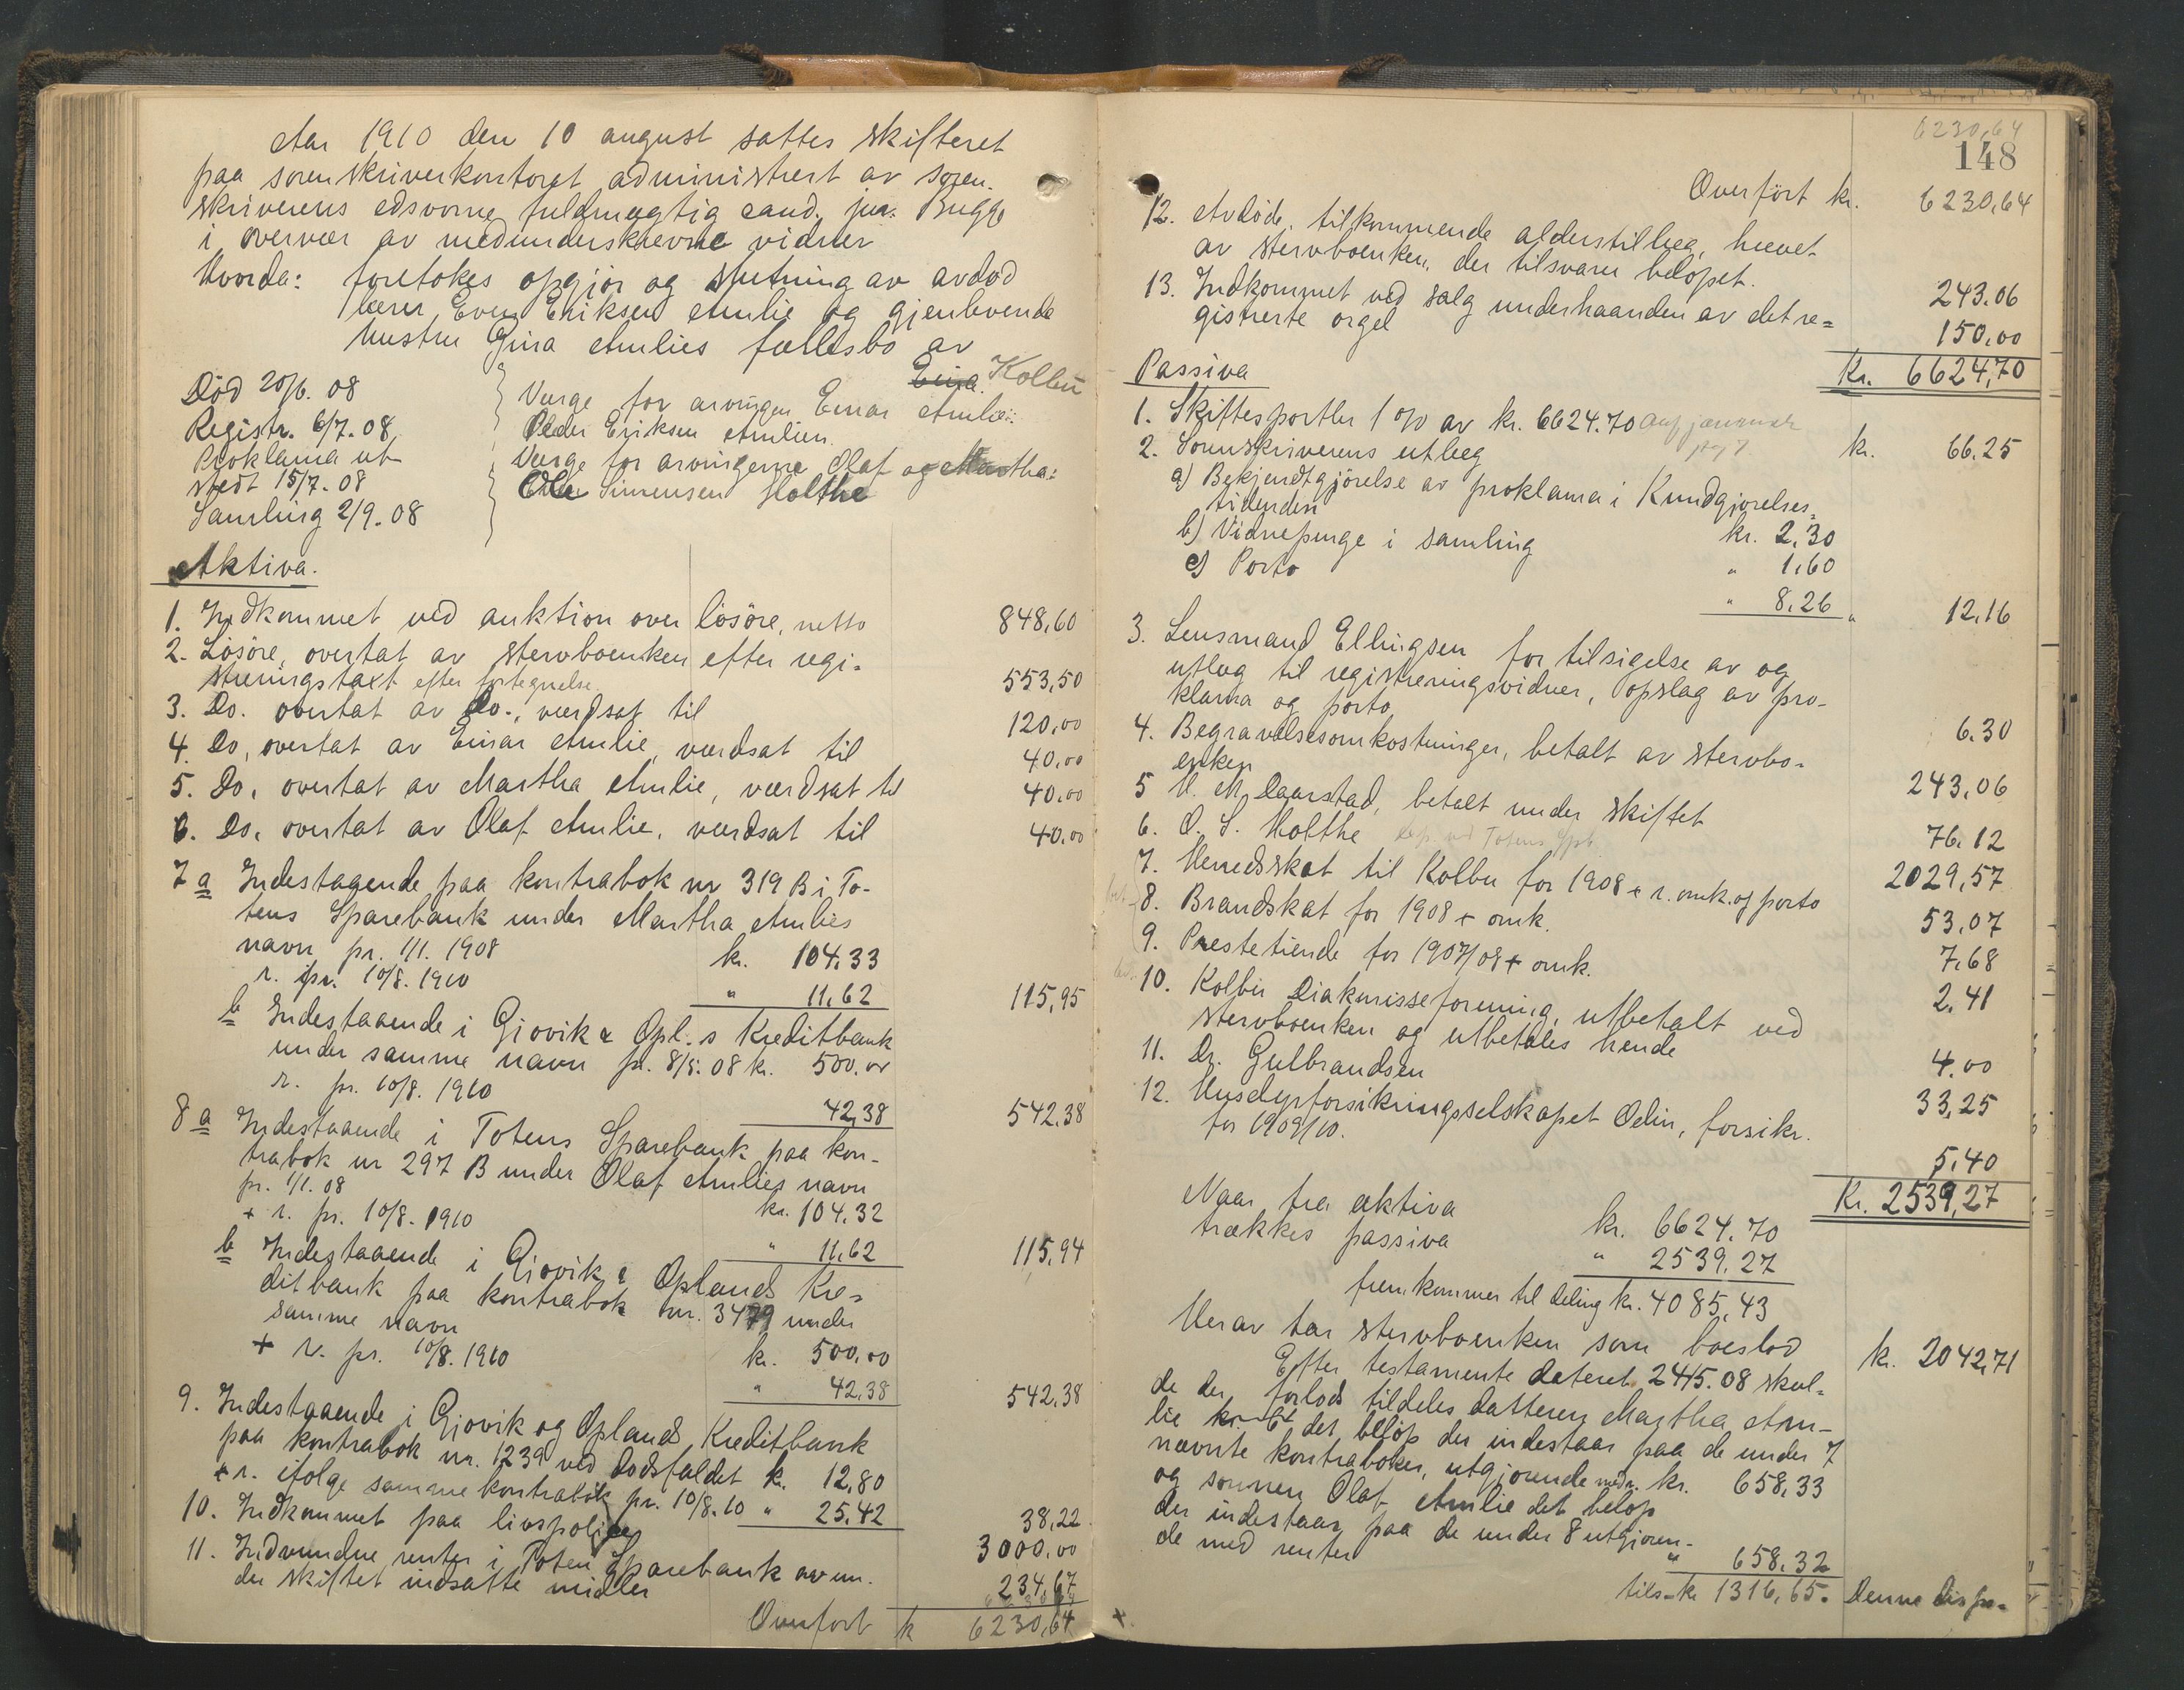 Aar 1910 den 10 august sattes skifteret
paa sorenskriverkontoret administrert av soren-
skriverens edsvorne fuldmægtig cand. jur. Bugge
i overvær av medunderskrevne vidner
Hvorda: foretokes opgjør og slutning av avdød
lærer Even Eriksen Amlie og gjenlevende
hustru Gina Amlies fællesbo av
Kolbu
Død 20/6. 08
Registr. 6/7. 08
Proklama ut-
stedt 15/7. 08
Samling 2/9. 08
Værge for arvingen Einar Amlie:
Peder Eriksen Amlien.
Værge for arvingerne Olaf og Martha:
Ole Simensen Holthe
Aktiva.
1. Indkommet ved auktion over løsøre, netto 848,60
2. Løsøre, overtat av stervboenken efter regi-
streringstaxt efter fortegnelse 553,50
3. Do. overtat av Do., værdsat til 120,00
4. Do, overtat av Einar Amlie, værdsat til 40,00
5. Do, overtat av Martha Amlie, værdsat til 40,00
6. Do, overtat av Olaf Amlie, værdsat til 40,00
7 a Indestaaende paa kontrabok nr 319 B i To-
tens Sparebank under Martha Amlies
navn pr. 1/1. 1908 kr. 104.33
r. pr. 10/8. 1910 " 11,62 115,95
b Indestaaende i Gjøvik & Opl.s Kreditbank
under samme navn pr. 8/5. 08 kr. 500.00
r. pr. 10/8. 1910 42,38 542.38
8 a Indestaaende i Totens Sparebank paa kon-
trabok nr 297 B under Olaf Amlies navn
pr. 1/1. 08 kr. 104.32
+ r. pr. 10/8. 1910 " 11,62 115,94
b Indestaaende i Gjøvik & Oplands Kre-
ditbank paa kontrabok nr. 3479 under
samme navn kr. 500,00
+ r. pr. 10/8. 1910 " 42,38 542.38
9. Indestaaende i Gjøvik og Oplands Kreditbank
paa kontrabok nr. 1239 ved dødsfaldet k. 12,80
+ r. ifølge samme kontrabok pr. 10/8. 10 " 25.42 38,22
10. Indkommet paa livspolice 3000,00
11. Indvundne renter i Toten Sparebank av un-
der skiftet indsatte midler 234,67
Overført k 6230,64
6230,64
148
Overført kr. 6230,64
12. Avdøde tilkommende alderstillæg, hævet
av stervboenken, der tilsvarer beløpet. 243.06
13. Indkommet ved salg underhaanden av det re-
gistrerte orgel 150,00
Kr. 6624,70
Passiva
1. Skiftesportler 1 % av kr. 6624.70 kr. 66.25
2. Sorenskriverens utlæg
a) Bekjendtgjørelse av proklama i Kundgjørelses-
tidenden kr. 2,30
b) Vidnepenge i samling " 1,60
c) Porto " 8,26 " 12,16
3. Lensmand Ellingsen for tilsigelse av og
utlæg til registreringsvidner, opslag av pro-
klama og porto 6.30
4. Begravelsesomkostninger, betalt av stervbo-
enken 243,06
5 M. M. Daarstad, betalt under skiftet 76.12
6. O. S. Holthe 2029,57
7. Herredsskat til Kolbu for 1908 + r. omk. og porto 53,07
8. Brandskat for 1908 + omk. 7,68
9. Prestetiende for 1907/08 + omk. 2,41
10. Kolbu Diakonisseforening, utbetalt ved
stervboenken og utbetales hende 4.00
11. Dr. Gulbrandsen 33,25
12. Husdyrforsikringsselskapet Odin, forsikr.
for 1909/10. 5,40
Kr. 2539,27
Naar fra aktiva kr. 6624.70
trækkes passiva " 2539,27
fremkommer til deling kr. 4085,43
Herav tar stervboenken som boeslod kr. 2042,71
Efter testamente dateret 24/5. 08 skul-
de der forlods tildeles datteren Martha Am-
lie det beløp der indestaar paa de under 7
nævnte kontrabøker, utgjørende kr. 658,33
og sønnen Olaf Amlie det beløp
der indestaar paa de under 8 utgjøren-
de med renter " 658.32
tils. kr 1316,65. Denne dispo-